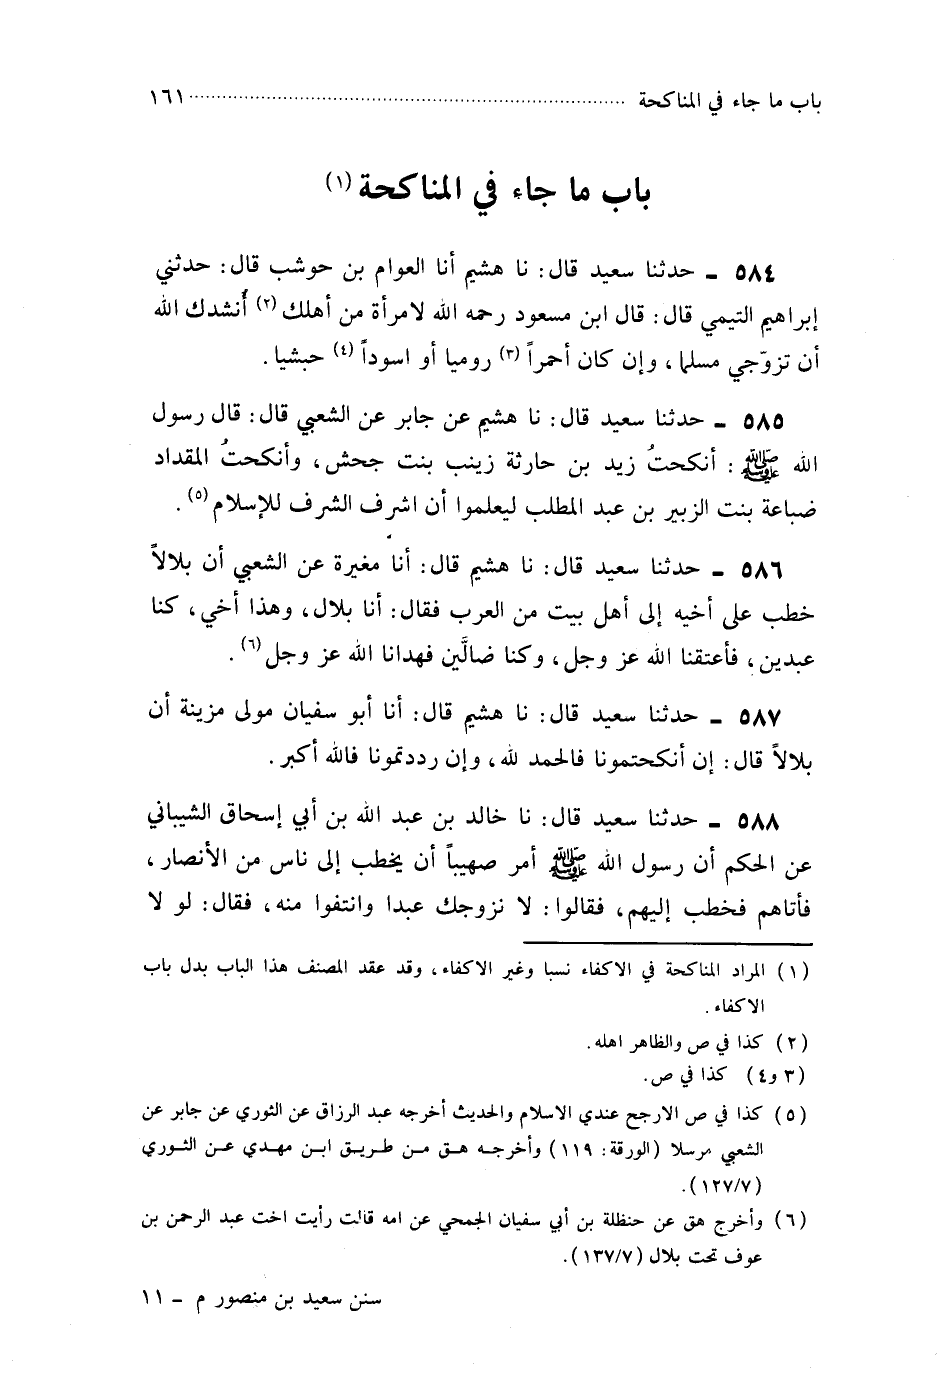 باب ما جاء في المناكحة ............ ١٦١
باب ما جاء في المناكحة (١)
٥٨٤ ـ حدثنا سعيد قال: نا هشيم أنا العوام بن حوشب قال: حدثني
إبراهيم التيمي قال: قال ابن مسعود رحمه الله لامرأة من أهلك (٢) أُنشدك الله
أن تزوّجي مسلما، وإن كان أحمراً (٣) روميا أو اسوداً (٤) حبشيا.
٥٨٥ ـ حدثنا سعيد قال: نا هشيم عن جابر عن الشعبي قال: قال رسول
الله ﷺ: أنكحتُ زيد بن حارثة زينب بنت جحش، وأنكحتُ المقداد
ضباعة بنت الزبير بن عبد المطلب ليعلموا أن اشرف الشرف للإسلام (٥).
٥٨٦ ـ حدثنا سعيد قال: نا هشيم قال: أنا مغيرة عن الشعبي أن بلالاً
خطب على أخيه إلى أهل بيت من العرب فقال: أنا بلال، وهذا أخي، كنا
عبدين، فأعتقنا الله عز وجل، وكنا ضالَّين فهدانا الله عز وجل (٦).
٥٨٧ ـ حدثنا سعيد قال: نا هشيم قال: أنا أبو سفيان مولى مزينة أن
بلالاً قال: إن أنكحتمونا فالحمد لله، وإن رددتمونا فالله أكبر.
٥٨٨ ـ حدثنا سعيد قال: نا خالد بن عبد الله بن أبي إسحاق الشيباني
عن الحكم أن رسول الله ﷺ أمر صهيباً أن يخطب إلى ناس من الأنصار،
فأتاهم فخطب إليهم، فقالوا: لا نزوجك عبدا وانتفوا منه، فقال: لو لا
(١) المراد المناكحة في الاكفاء نسبا وغير الاكفاء، وقد عقد المصنف هذا الباب بدل باب
الاكفاء.
(٢) كذا في ص والظاهر اهله.
(٣ و٤) كذا في ص.
(٥) كذا في ص الارجح عندي الاسلام والحديث أخرجه عبد الرزاق عن الثوري عن جابر عن
الشعبي مرسلا (الورقة: ١١٩) وأخرجه هق من طريق ابن مهدي عن الثوري
(١٢٧/٧).
(٦) وأخرج هق عن حنظلة بن أبي سفيان الجمحي عن امه قالت رأيت اخت عبد الرحمن بن
عوف تحت بلال (١٣٧/٧).
سنن سعيد بن منصور م ـ ١١